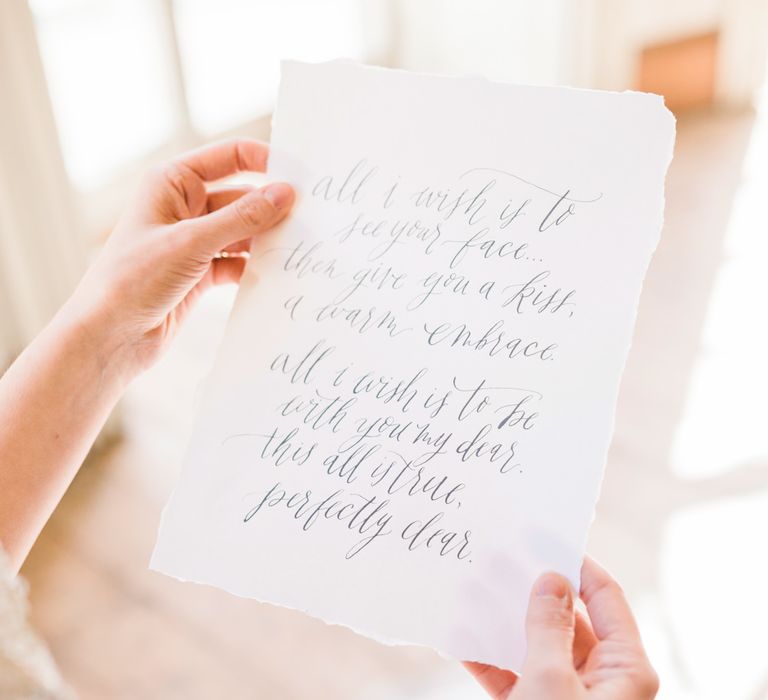 all i wish is to
see your face...
then give you a kiss,
a warm embrace.
all i wish is to be
with you my dear.
this all is true,
perfectly clear.